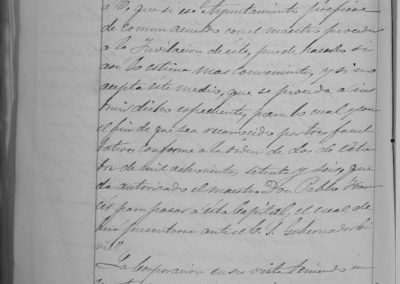 a lo que si ese Ayuntamiento prefiere
de comun acuerdo con el maestro proceder
a la Jubilacion de este, puede hacerlo si
asi lo estima mas conveniente, y si no
acepta este medio, que se proceda a ins
truir dicho espediente, para lo cual y con
el fin de que sea reconocido por tres facul
tativos conforme a la orden de dos de Octu
bre de mil ochocientos setenta y seis, que
da autorizado el maestro Don Pablo Fran
cés para pasar a esta Capital, el cual de
bera presentarse ante el E. S. Gobernador Ci
vil"
La Corporacion en su vista teniendo en